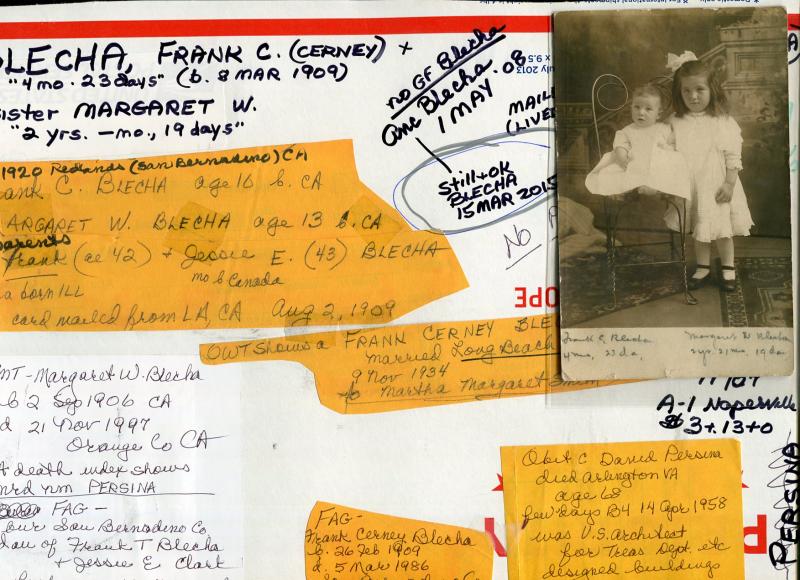 BLECHA, FRANK C. (CERNEY) +
"4 mo. 23 days" (b. 8 MAR 1909)
sister MARGARET W.
"2 yrs. —mo., 19 days"
no GF Blecha
Anc Blecha.
1 MAY 08
MAILE
(LIVE
Still + ok
BLECHA
15 MAR 2015
No
1920 Redlands (San Bernadino) CA
Frank C. BLECHA age 10 b. CA
MARGARET W. BLECHA age 13 b. CA
parents
Frank (ae 42) + Jessie E. (43) BLECHA
mo b Canada
born ILL
card mailed from LA, CA Aug 2, 1909
OPE
OWT shows a FRANK CERNEY BLE
married Long Beach
9 Nov 1934
to Martha Margaret Smith
Frank C. Blecha
4 mo, 23 da,
Margaret W Blecha
2 yr. 21 mo. 19 da
11/07
A-1 Naperville
$3+.13+0
PERSINA
MT - Margaret W. Blecha
b 2 Sep 1906 CA
d 21 Nov 1997
Orange Co CA
death index shows
mrd nm PERSINA
FAG -
our San Bernadino Co
dau of Frank T Blecha
+ Jessie E Clark
FAG -
Frank Cerney Blecha
b. 26 Feb 1909
d. 5 Mar 1986
Obit C David Persina
died Arlington VA
age 68
few days B4 14 Apr 1958
was U.S. architect
for Treas Dept. etc
designed buildings